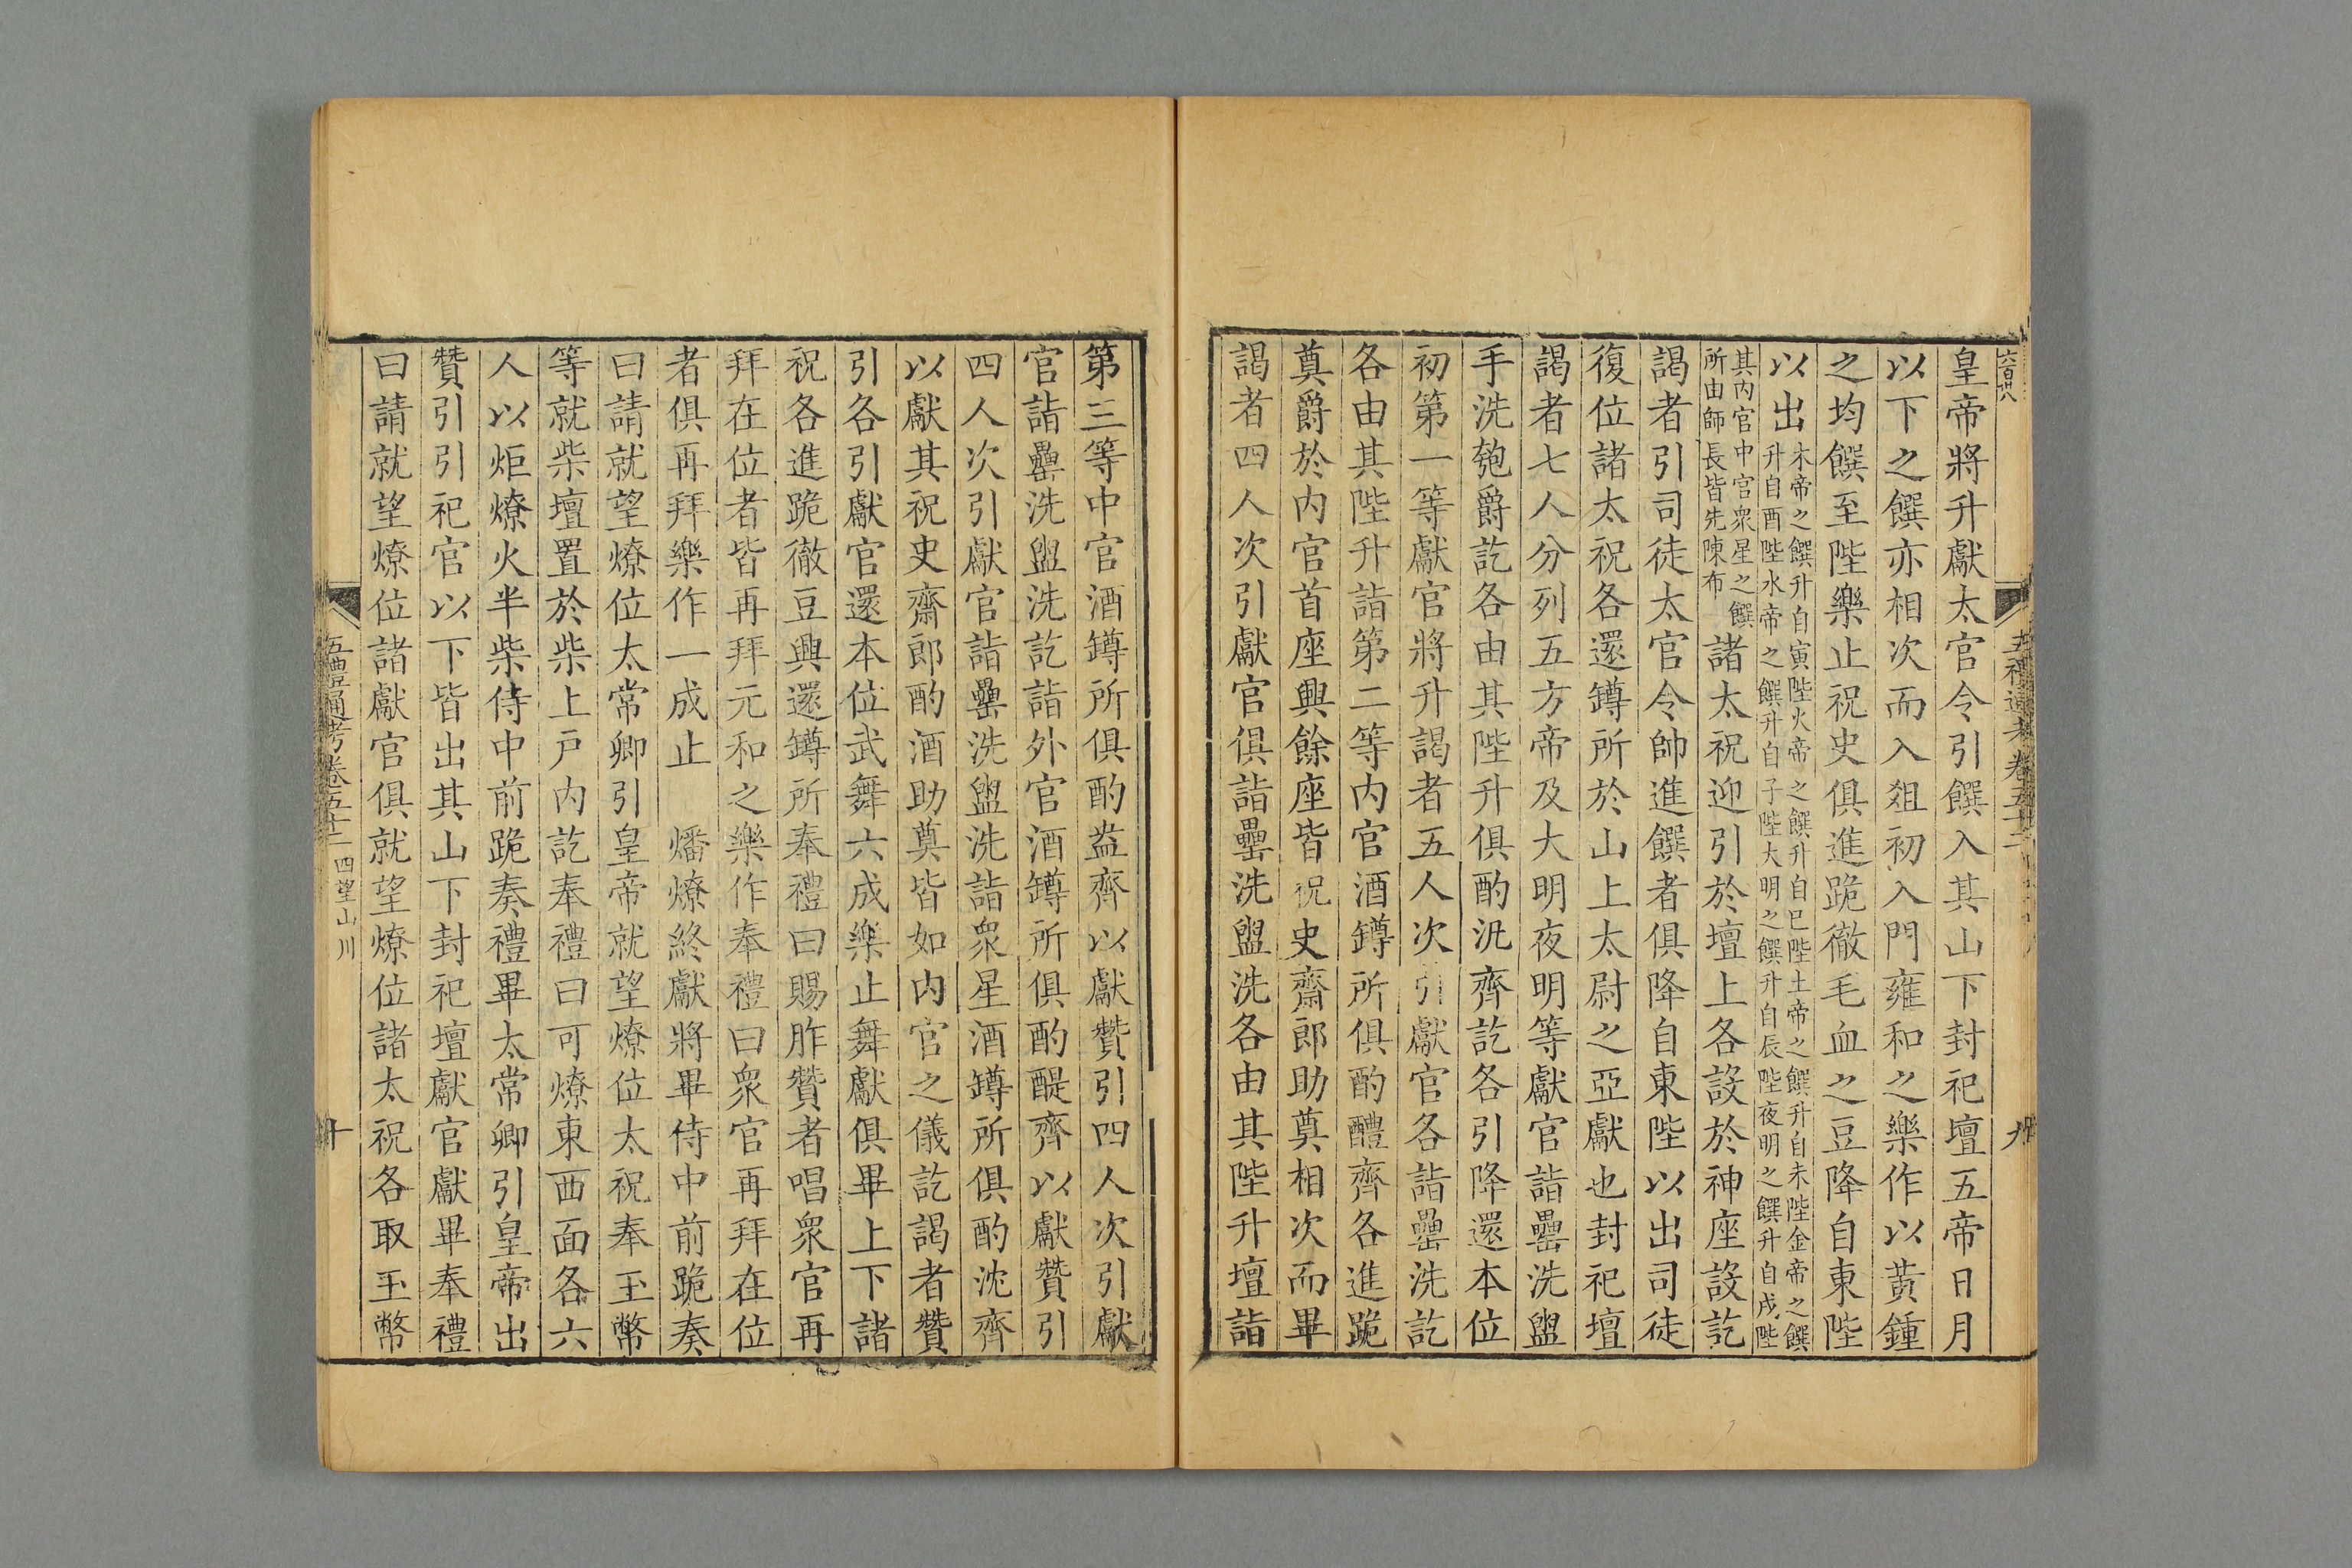 皇帝將升獻太官令引饌入其山下封祀壇五帝日月
以下之饌亦相次而入俎初入門雍和之樂作以黃鍾
之均饌至陛樂止祝史俱進跪徹毛血之豆降自東陛
以出木帝之饌升自寅陛火帝之饌升自巳陛土帝之饌升自未陛金帝之饌
升自酉陛水帝之饌升自子陛大明之饌升自辰陛夜明之饌升自戌陛
其內官中官衆星之饌
所由師長皆先陳布諸太祝迎引於壇上各設於神座設訖
謁者引司徒太官令帥進饌者俱降自東陛以出司徒
復位諸太祝各還罇所於山上太尉之亞獻也封祀壇
謁者七人分列五方帝及大明夜明等獻官詣罍洗盥
手洗匏爵訖各由其陛升俱酌汎齊訖各引降還本位
初第一等獻官將升謁者五人次引獻官各詣罍洗訖
各由其陛升詣第二等內官酒罇所俱酌醴齊各進跪
奠爵於內官首座興餘座皆祝史齋郎助奠相次而畢
謁者四人次引獻官俱詣罍洗盥洗各由其陛升壇詣
第三等中官酒罇所俱酌盎齊以獻贊引四人次引獻
官詣罍洗盥洗訖詣外官酒罇所俱酌醍齊以獻贊引
四人次引獻官詣罍洗盥洗詣衆星酒罇所俱酌沈齊
以獻其祝史齋郎酌酒助奠皆如內官之儀訖謁者贊
引各引獻官還本位武舞六成樂止舞獻俱畢上下諸
祝各進跪徹豆興還罇所奉禮曰賜胙贊者唱衆官再
拜在位者皆再拜元和之樂作奉禮曰衆官再拜在位
者俱再拜樂作一成止　燔燎終獻將畢侍中前跪奏
曰請就望燎位太常卿引皇帝就望燎位太祝奉玉幣
等就柴壇置於柴上戶內訖奉禮曰可燎東西面各六
人以炬燎火半柴侍中前跪奏禮畢太常卿引皇帝出
贊引引祀官以下皆出其山下封祀壇獻官獻畢奉禮
曰請就望燎位諸獻官俱就望燎位諸太祝各取玉幣
五禮通考卷五十二　四望山川
十